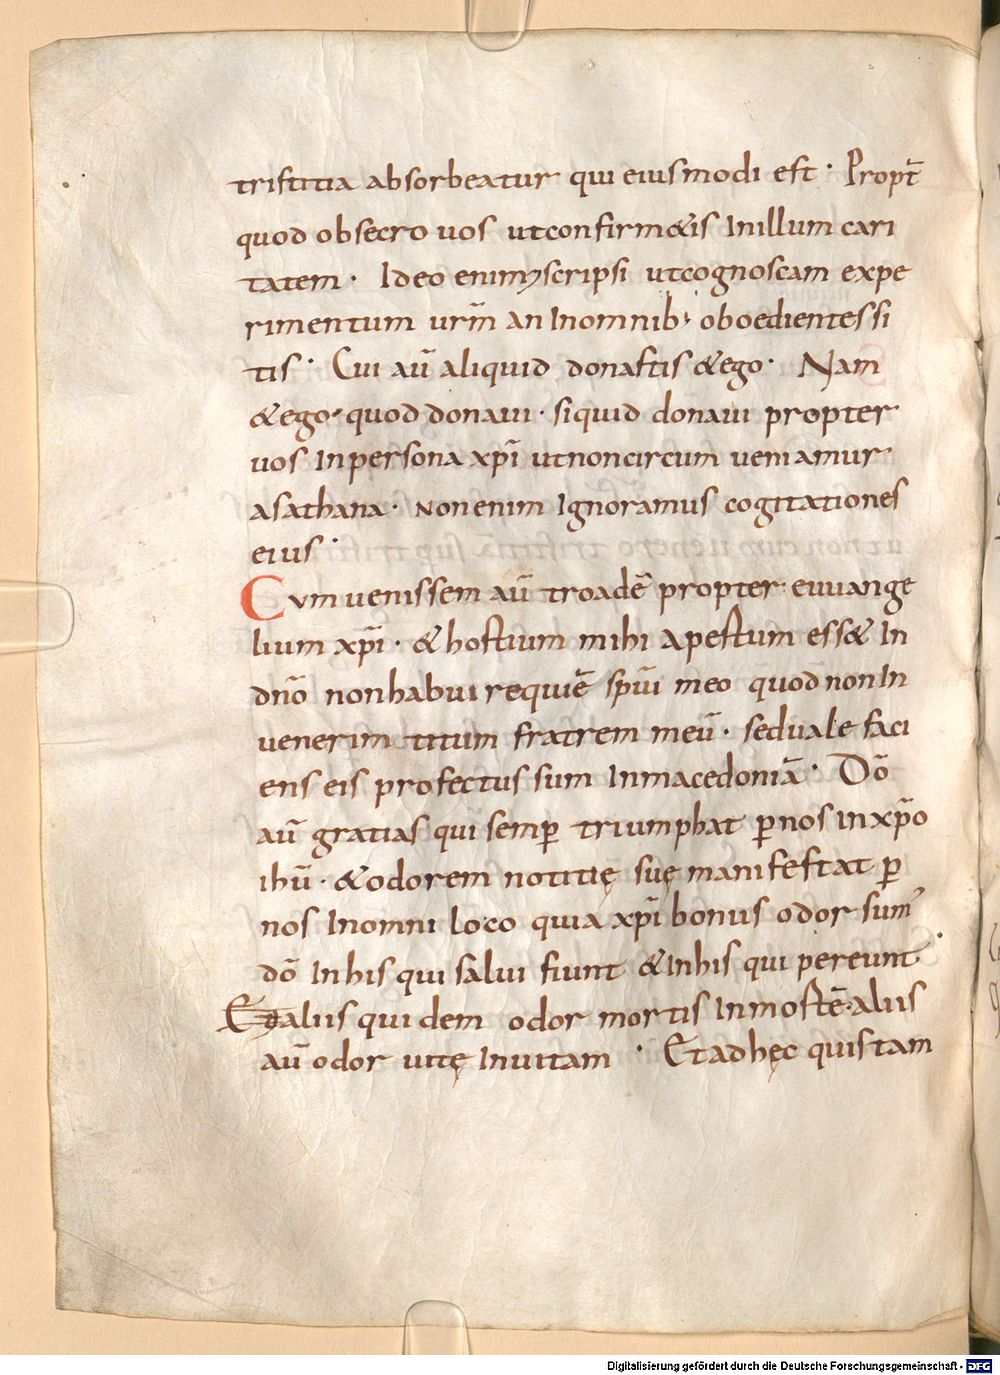 tristitia absorbeatur qui eiusmodi est · Propt̄
quod obsecro uos utconfirm&is Inillum cari
tatem · Ideo enim &scripsi utcognoscam expe
rimentum ur̄m an Inomnib; oboedientes si
tis · Cui aū aliquid donastis &ego · Nam
&ego · quod donaui · siquid donaui propter
uos Inpersona xp̄i utnoncircum ueniamur
asathana · Nonenim Ignoramus cogitationes
eius ·
Cum uenissem aū troadē propter euuange
lium xp̄i · &hostium mihi apestum ess& In
dn̄o nonhabui requiē sp̄ui meo quod nonIn
uenerim titum fratrem meū · seduale faci
ens eis profectus sum Inmacedoniā · Dō
aū gratias qui semp̄ triumphat p̄nos inxp̄o
ihū · &odorem notitię suę manifestat p̄
nos Inomni loco quia xp̄i bonus odor sum'
dō Inhis qui salui fiunt &Inhis qui pereunt ·
Etaliis qui dem odor mortis Inmostē · aliis
aū odor uitę Inuitam · Etadhęc quistam